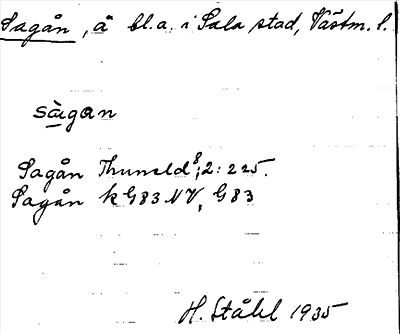 Sagån, å bl.a. i Sala stad, Västm. l.
sàgan
Sagån Thuneld⁸, 2: 225.
Sagån k G83 NV, G83
H. Ståhl 1935